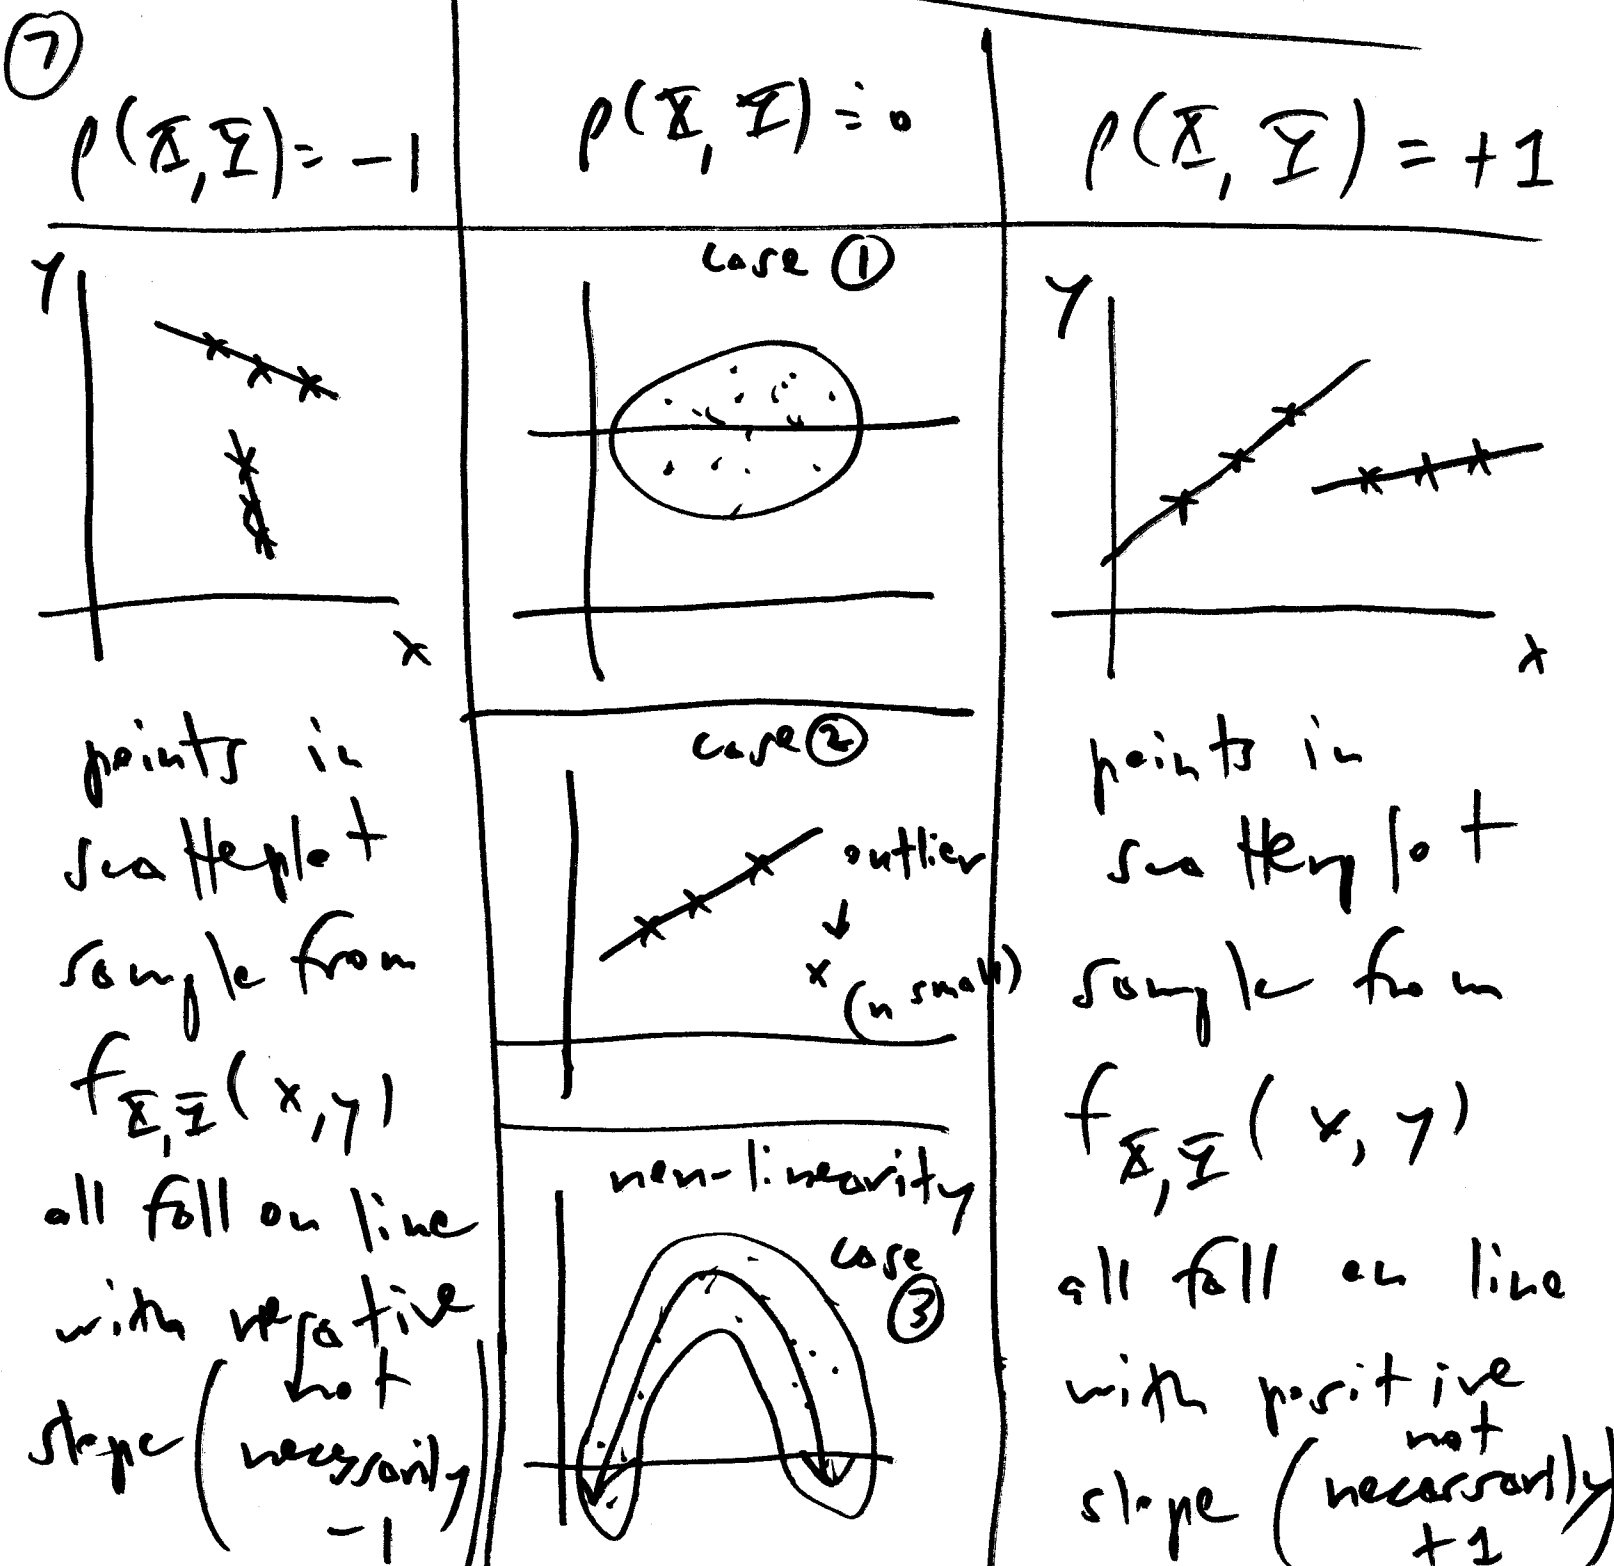 7
ρ(X, Y) = -1
Y
x
points in
scatterplot
sample from
f_{X,Y}(x,y)
all fall on line
with negative
slope (not
necessarily
-1)
ρ(X, Y) = 0
case ①
case ②
outlier
↓
x
(n small)
non-linearity
case
③
ρ(X, Y) = +1
Y
x
points in
scatterplot
sample from
f_{X,Y}(x, y)
all fall on line
with positive
slope (not
necessarily
+1)